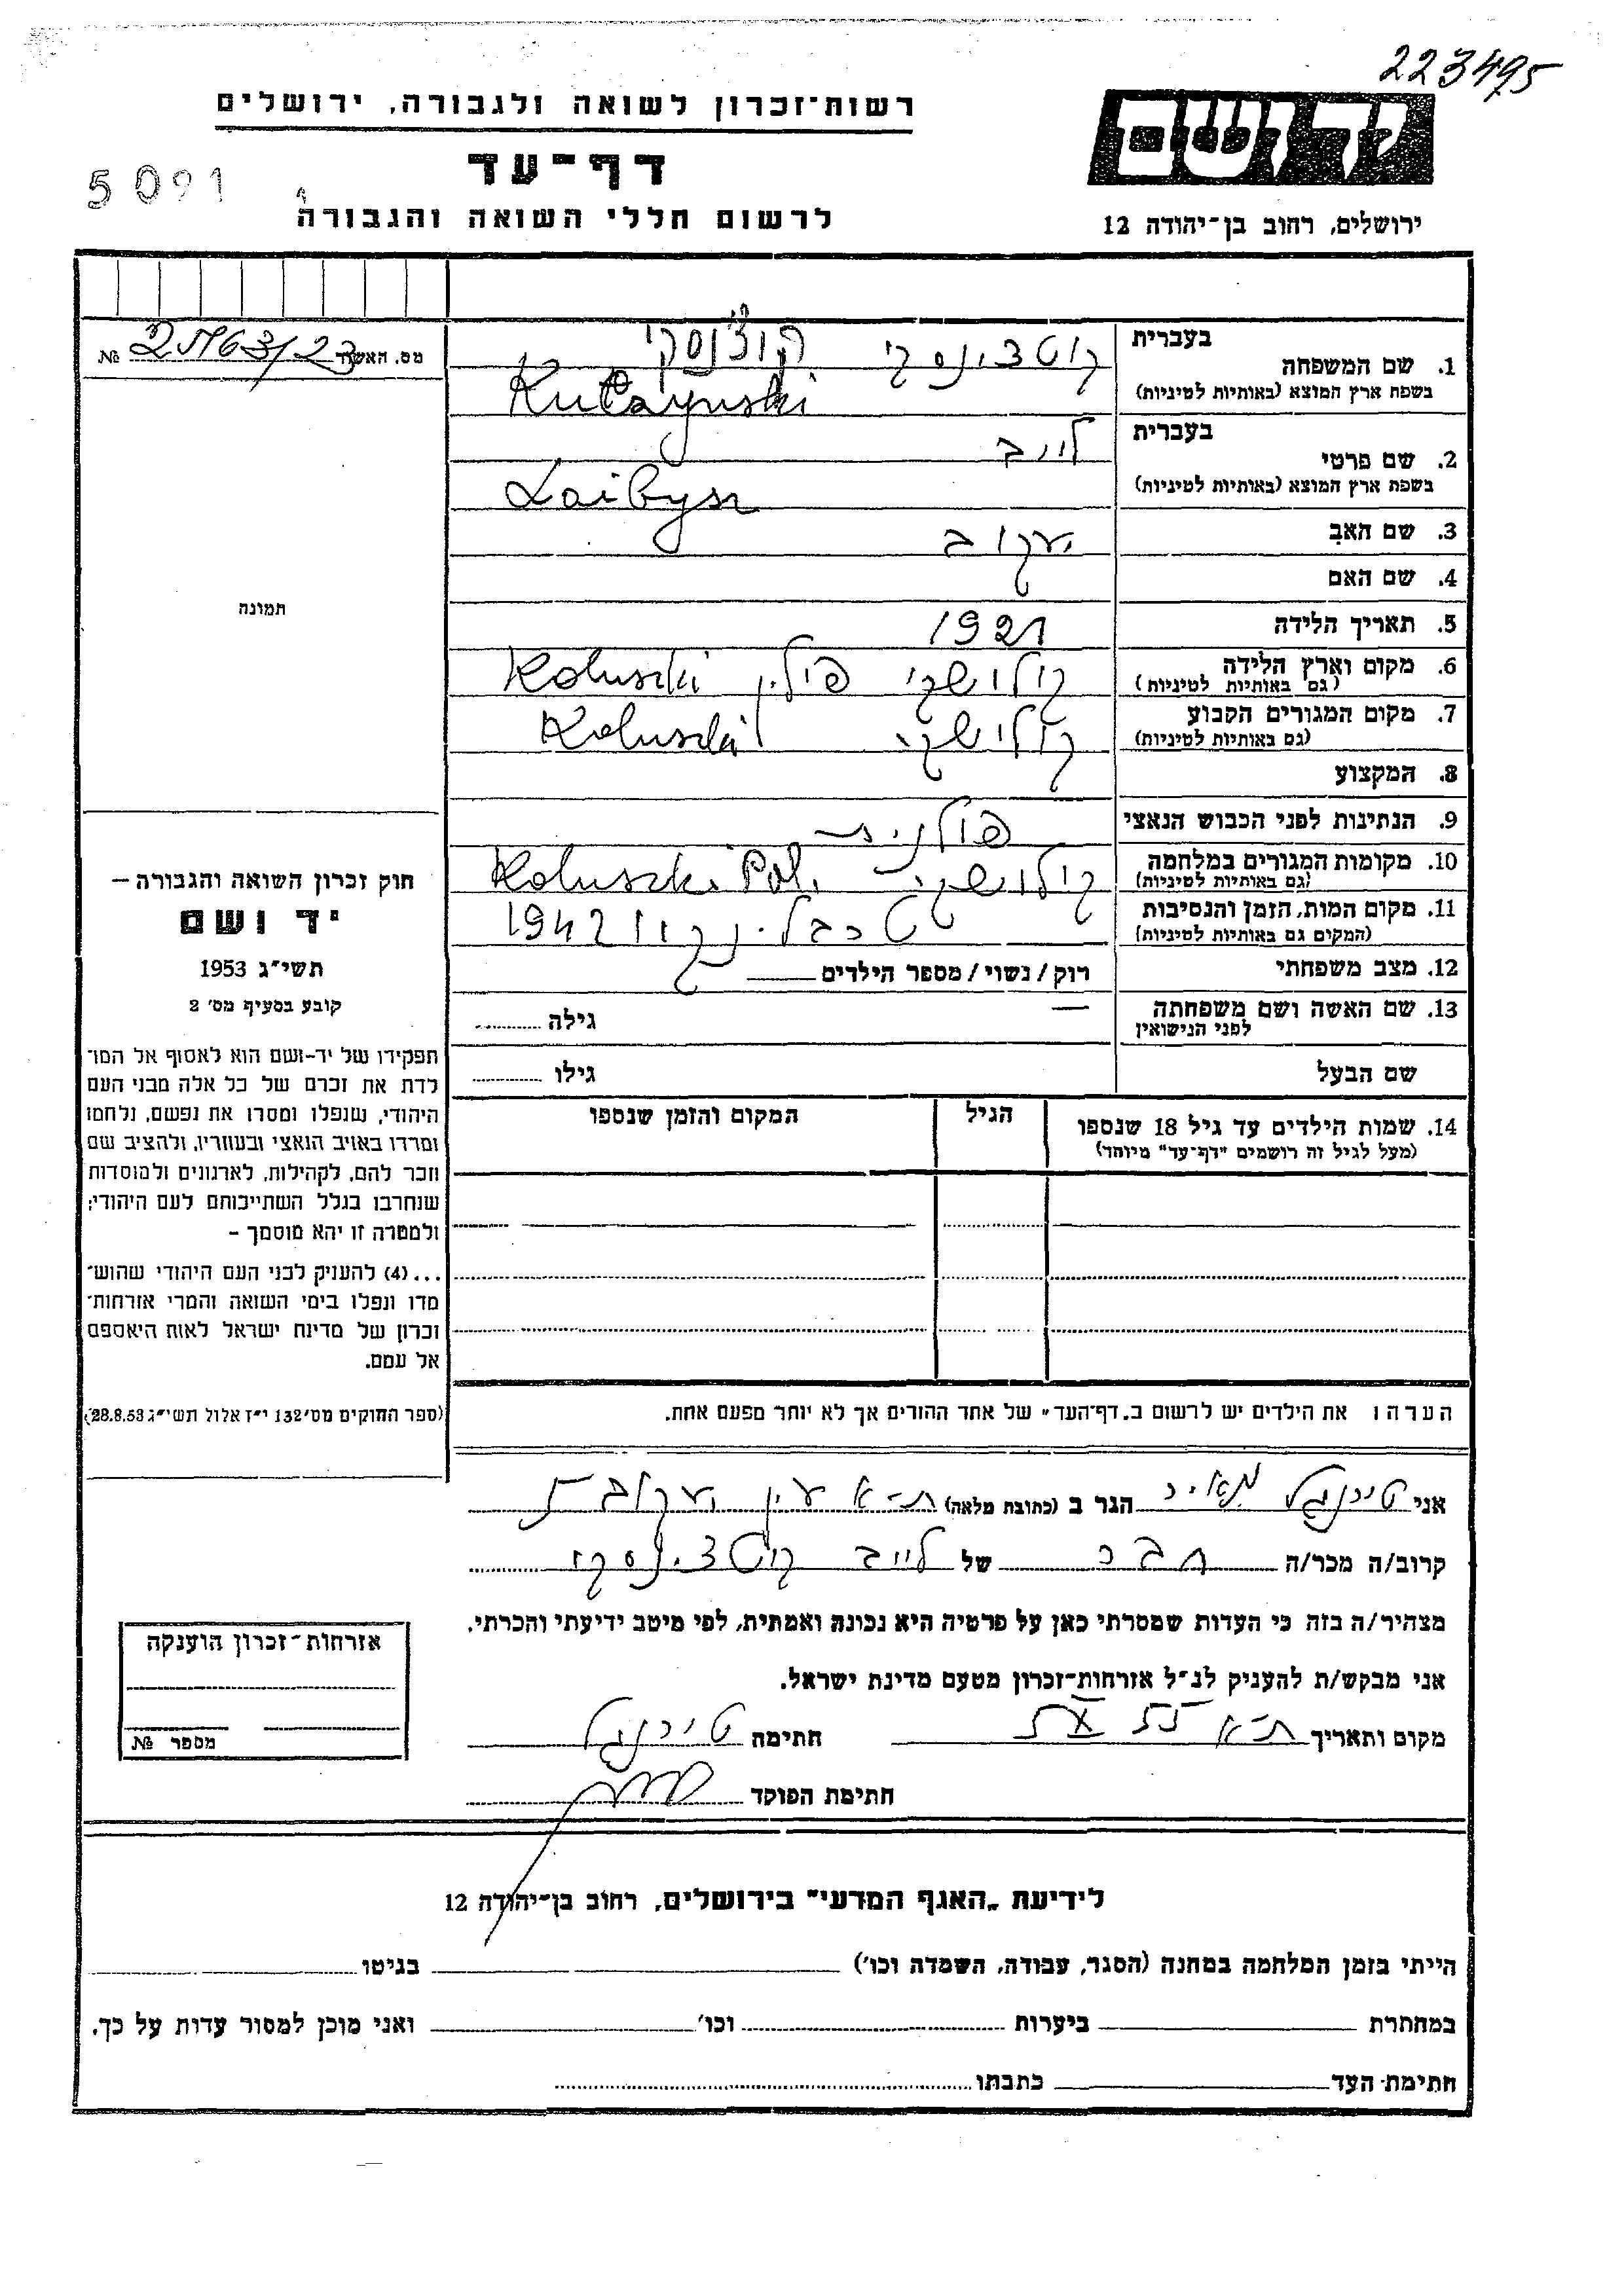 223495
רשות־זכרון לשואה ולגבורה, ירושלים
יד ושם
דף־עד
5091
לרשום חללי השואה והגבורה
ירושלים, רחוב בן־יהודה 12
בעברית
1. שם המשפחה
(בשפת ארץ המוצא (באותיות לטיניות
קוטצ'ינסקי קוצ'נסקי
מס. האשה №
Kutczynski
בעברית
2. שם פרטי
בשפת ארץ המוצא (באותיות לטיניות)
לייב
Laibysz
3. שם האב יעקוב
4. שם האם
תמונה
5. תאריך הלידה 1921
6. מקום וארץ הלידה קולושקי פולין Koluszki
(גם באותיות לטיניות)
7. מקום המגורים הקבוע קולושקי Koluszki
(גם באותיות לטיניות)
8. המקצוע
9. הנתינות לפני הכבוש הנאצי פולנית
10. מקומות המגורים במלחמה קולושקי Koluszki Pol.
(גם באותיות לטיניות)
11. מקום המות, הזמן והנסיבות טרבלינקו 1942
(המקום גם באותיות לטיניות)
12. מצב משפחתי רוק / נשוי / מספר הילדים
13. שם האשה ושם משפחתה — גילה
לפני הנישואין
שם הבעל גילו
14. שמות הילדים עד גיל 18 שנספו הגיל המקום והזמן שנספו
(מעל לגיל זה רושמים "דף־עד" מיוחד)
חוק זכרון השואה והגבורה –
יד ושם
תשי"ג 1953
קובע בסעיף מס' 2
תפקידו של יד-ושם הוא לאסוף אל המו־
לדת את זכרם של כל אלה מבני העם
היהודי, שנפלו ומסרו את נפשם, נלחמו
ומרדו באויב הנאצי ובעוזריו, ולהציב שם
וזכר להם, לקהילות, לארגונים ולמוסדות
שנחרבו בגלל השתייכותם לעם היהודי;
ולמטרה זו יהא מוסמך –
...(4) להעניק לבני העם היהודי שהוש־
מדו ונפלו בימי השואה והמרי אזרחות־
זכרון של מדינת ישראל לאות היאספם
אל עמם.
(ספר החוקים מס' 132 י"ז אלול תשי"ג 28.8.53)
הערה: את הילדים יש לרשום ב„דף־העד" של אחד ההורים אך לא יותר מפעם אחת.
אני טירנגל מאיר הגר ב (כתובת מלאה) ת-א
קרוב/ה מכר/ה חבר של לייב קוטצ'ינסקי
מצהיר/ה בזה כי העדות שמסרתי כאן על פרטיה היא נכונה ואמתית, לפי מיטב ידיעתי והכרתי.
אני מבקש/ת להעניק לנ"ל אזרחות־זכרון מטעם מדינת ישראל.
מקום ותאריך ת-א חתימה טירנגל
חתימת הפוקד
אזרחות־זכרון הוענקה
מספר №
לידיעת „האגף המדעי" בירושלים, רחוב בן־יהודה 12
הייתי בזמן המלחמה במחנה (הסגר, עבודה, השמדה וכו') בגיטו
במחתרת ביערות וכו' ואני מוכן למסור עדות על כך.
חתימת־העד כתבתו